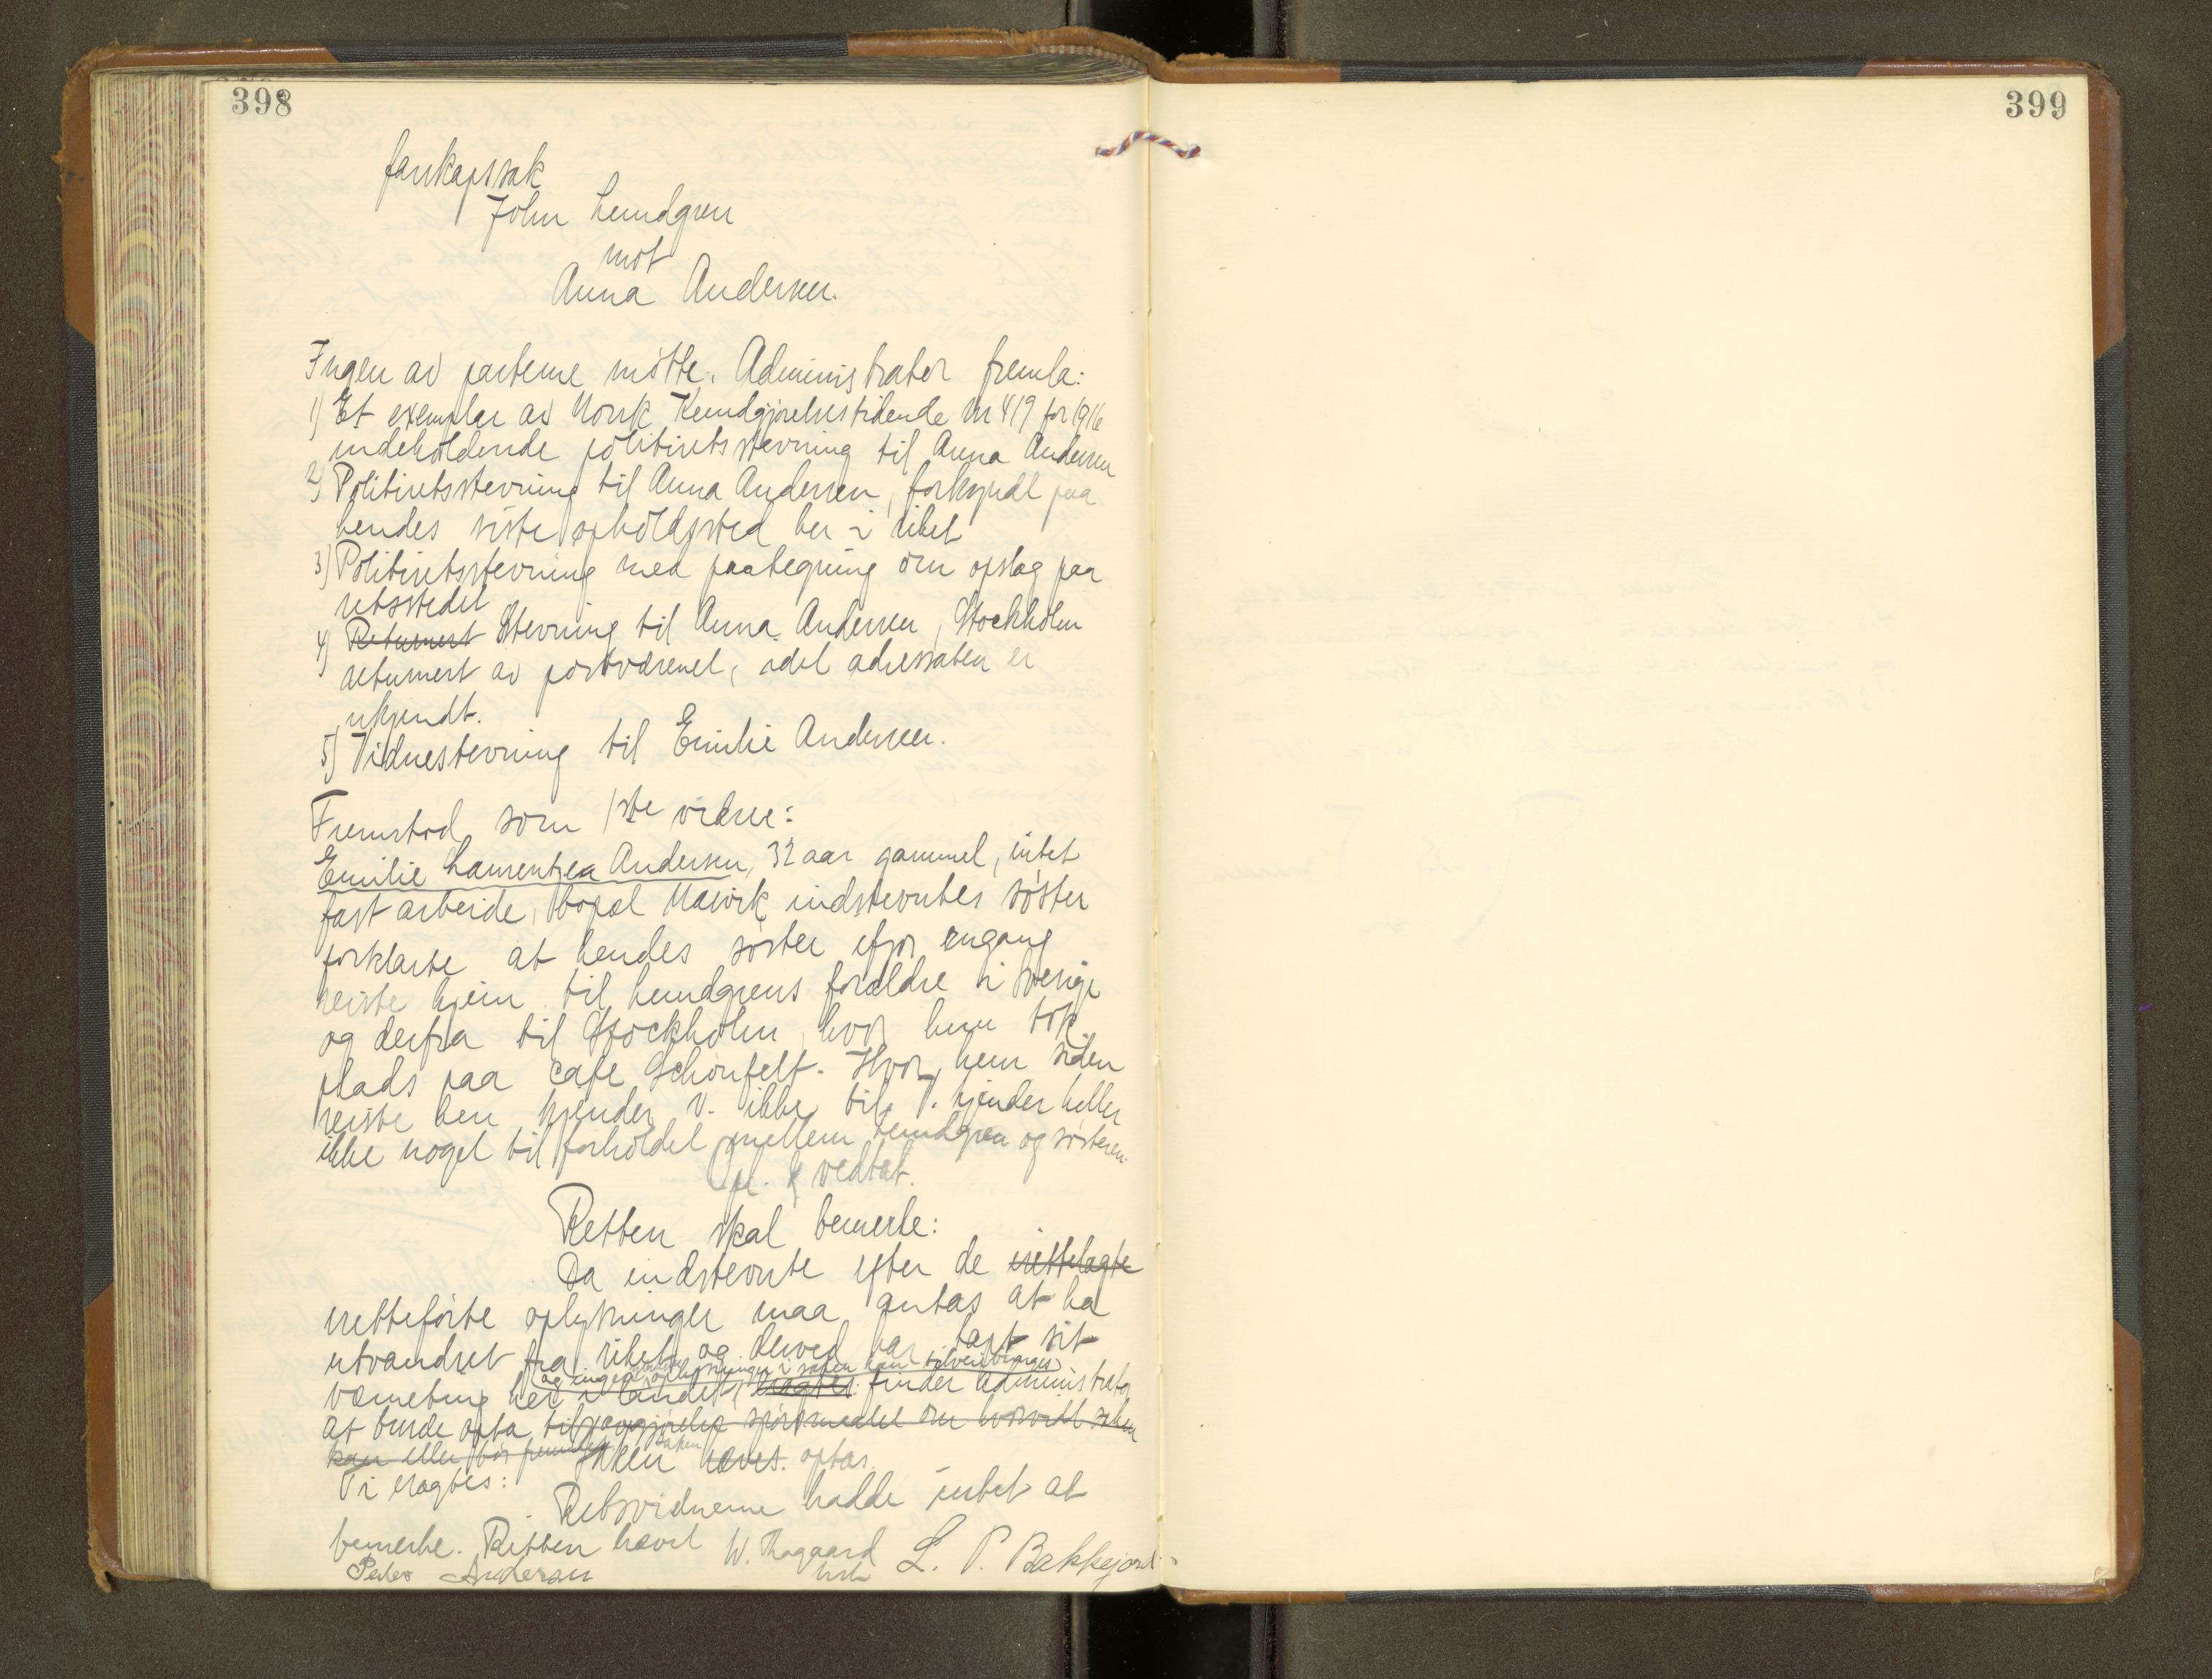 398
farskapssak
John Lundgren
mot
Anna Andersen.
Ingen av parterne møtte. Administrator fremla:
1) Et exemplar av Norsk Kundgjørelsestidende nr 419 for 1916
indeholdende politiretsstevning til Anna Andersen
2) Politiretsstevning til Anna Andersen, forkyndt paa
hendes siste opholdssted her i riket
3) Politiretsstevning med paategning om opslag paa
retsstedet
4) Returnert Stevning til Anna Andersen, Stockholm
returnert av postvæsenet, idet adressaten er
ukjendt.
5) Vidnestevning til Emilie Andersen.
Fremstod som 1ste vidne:
Emilie Laurentzea Andersen, 32 aar gammel, intet
fast arbeide, bopæl Narvik indstevntes søster
forklarte at hendes søster ifjor engang
reiste hjem til Lundgrens forældre i Sverige
og derfra til Stockholm, hvor hun tok
plads paa cafe Schønfelt. Hvor hun siden
reiste hen kjender V. ikke til. V. kjender heller
ikke noget til forholdet mellem Lundgren og søsteren.
Opl. & vedtat.
Retten skal bemerke:
Da indstevnte efter de irettelagte
iretteførte oplysninger maa antas at ha
utvandret fra riket og derved har tapt sit
og ingen oplysninger i saken kan tilveiebringes
verneting her i landet, eragtes: finder administrator
at burde opta til avgjørelse spørsmaalet om hvorvidt saken
kan eller bør fremmes Saken
Ti eragtes: Saken hæves. optas.
Retsvidnerne hadde intet at
bemerke. Retten hævet W. Thagaard L. P. Bakkejord
Peder Andersen
399